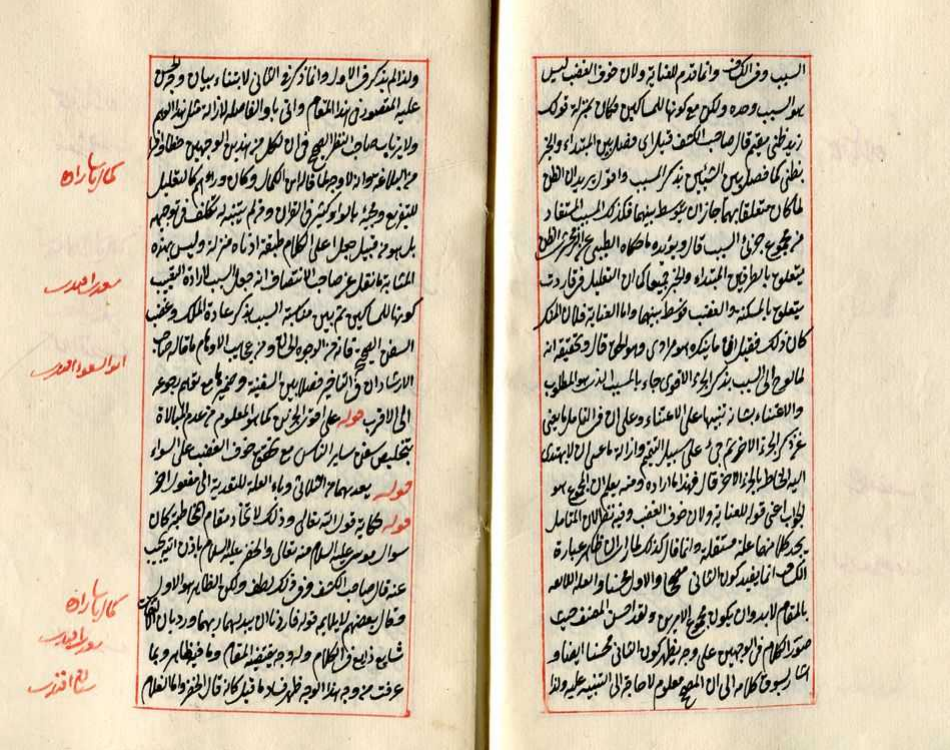 السبب وفى الكشف وانما قدم للعناية ولان خوف الغضب ليس
هو السبب وحده ولكن مع كونها للمساكين فكان بمنزلة قولك
زيد ظنى مقيم قال صاحب الكشف قيل اى وفصل بين المبتداء والخبر
بظنى كما فصل بين الشيئين بذكر السبب واقول يريد ان الظن
لما كان متعلقا بهما جاز ان يتوسط بينهما فكذلك السبب المستفاد
من مجموع جزئى السبب قال ويؤيده ما حكاه الطيبى عن الزمخشرى الظن
يتعلق بالطرفين المبتداء والخبر جميعا كما ان التعليل فى فاردت
يتعلق بالمسكنة والغصب فوسط بينهما واما العناية فلان المنكر
كان ذلك فقيل انما ما ينكره هو مرادى وهو لطيف قال وتحقيقه انه
لما لوح الى السبب بذكر الجزء الاقوى جاء بالمسبب الذى هو المطلوب
والاعتناء بشانه تنبيها على الاعتناء وعلى ان فى التامل ما يغنى
عن ذكر الجزء الاخر ثم جئ على سبيل التتميم وازالة ما عسى ان لا يهتدى
اليه الخاطر بالجزء الاخر قال فهذا ما اراده ومنه يعلم ان المجموع هو
الجواب اعنى قوله للعناية ولان خوف الغصب وفيه نظر لان المتامل
يجد كلا منهما علة مستقلة وانما قال كذلك لما راى ان ظاهر عبارة
الكشف انما يفيد كون الثانى مصححا والاول محسنا والعلة اللائقة
بالمقام لابد وان يكون مجموع الامرين ولقد احسن المصنف حيث
صور الكلام فى الوجهين على وجه يظهر كون الثانى محسنا ايضا و
اشار بسوق كلامه الى ان المصحح معلوم لا حاجة الى التنبيه عليه ولذا
ولذا لم يذكر فى الاول وانما ذكر فى الثانى لابتناء بيان وجه الحسن
عليه المقصود فى هذا المقام واتى باو الفاصلة لازالة مثل هذا الوهم
من البلاغة وانه لا وجه لما قاله ابن الكمال وكان
للتفريع ومجئه بالواو كثير فى القران ومن لم يتنبه له تكلف فى توجيهه
بل هو من قبيل جعل اعلى الكلام طبقة ادناه منزلة وليس بهذه
المثابة ما نقل عن صاحب الانتصاف انه جعل السبب لارادة التعييب
كونها للمساكين ثم بين مناسبة السبب بذكر عادة الملك وغصب
السفن الصحيح فانه من الوجوه الحسان ومن عجايب الاوهام ما قاله صاحب
الارشاد ان فى التاخير فصلا بين السفينة وضميرها مع توهم رجوعه
الى الاقرب قوله على اقوى الجزئين كما هو المعلوم من عدم المبالاة
بتخليص سفن سائر الناس مع تحقق خوف الغصب على السواء
قوله
قوله حكاية قول الله تعالى وذلك لاتحاد مقام المخاطبة كان
سوال موسى عليه السلام منه تعالى والخضر عليه السلام باذن الله يجيب
عنه قال صاحب الكشف وفى ذلك لطف ولكن الظاهر هو الاول
وقال بعضهم لا يلايمه قوله فاردنا ان يبدلهما ربهما ورد بان
شايع ذايع فى الكلام وله وجه يقتضيه المقام وما فيه ظاهر وبما
عرفت من وجه هذا الوجه ظهر فساد ما قيل كانه قال الخضر واما الغلام
كمال پاشا زاده
سعدى افندى
ابو السعود افندى
كمال پاشا زاده
سعدى افندى